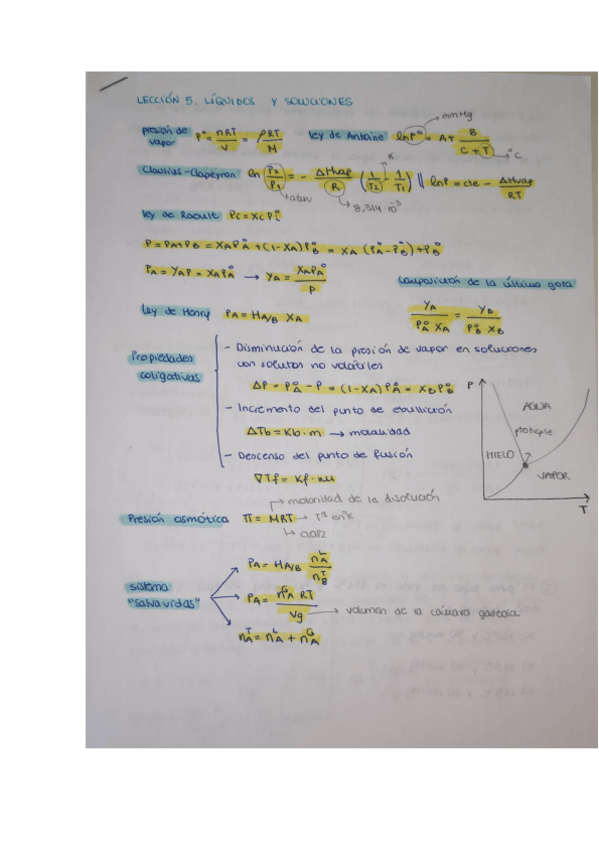 LECCIÓN 5. LÍQUIDOS Y SOLUCIONES
mmHg
presión de vapor P° = nRT/V = ρRT/M Ley de Antoine ln P° = A + B/(C + T) °C
K
Clausius-Clapeyron ln P2/P1 = - ΔHvap/R (1/T2 - 1/T1) || ln P = cte - ΔHvap/RT
atm 8,314·10⁻³
Ley de Raoult Pi = Xi Pi°
P = PA + PB = XA PA° + (1 - XA) PB° = XA (PA° - PB°) + PB°
PA = YA P = XA PA° → YA = XA PA°/P
composición de la última gota
YA/(PA° XA) = YB/(PB° XB)
Ley de Henry PA = HA/B XA
Propiedades coligativas
- Disminución de la presión de vapor en soluciones
con solutos no volátiles
ΔP = PA° - P = (1 - XA) PA° = XB PB°
- Incremento del punto de ebullición
ΔTb = Kb · m → molalidad
- Descenso del punto de fusión
∇Tf = Kf · m
P
AGUA
pto triple
HIELO
VAPOR
T
molaridad de la disolución
Presión osmótica π = MRT → Tª en K
0,082
sistema "salvavidas"
PA = HA/B nA^L/nB^T
PA = nA^G RT/Vg → volumen de la cámara gaseosa
nA^T = nA^L + nA^G